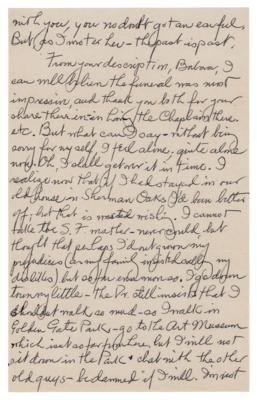 with you, you no doubt got an earful.
But as I wrote her — the past is past.
From your description, Barbara, I
can well believe the funeral was most
impressive, and thank you both for your
share there in - having the Chaplain there
etc. But what can I say - without being
sorry for myself, I feel alone. quite alone
now. Oh, I shall get over it in time. I
realize now that if I had stayed in our
old house in Sherman Oaks I'd be better
off, but that is wishing. I cannot
take the S.F. weather - never could, but
thought that perhaps I'd outgrown my
prejudices (as my family calls my
dislikes) but so far even more so. I go down
town very little - the Dr. still insists that I
should walk so much - so I walk in
Golden Gate Park - go to the Art Museum
which is not so far from here, but I will not
sit down in the Park & chat with the other
old guys - be damned if I will. I'm not